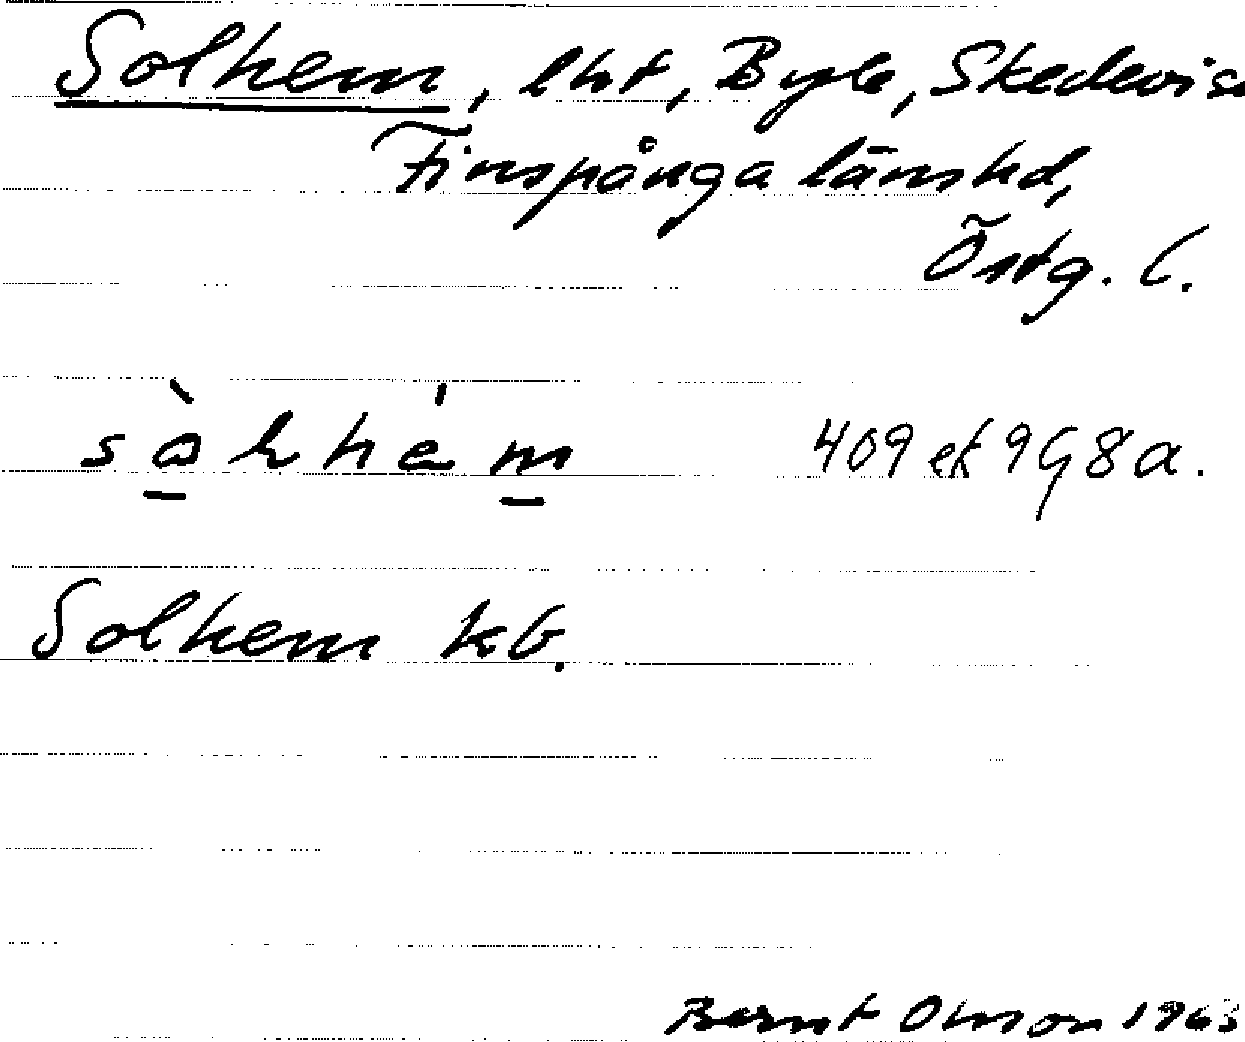 Solhem, lht, Byle, Skedevi s
Finspånga länshd,
Östg. l.
sàlhèm 409 ek 9G8a.
Solhem kb.
Bernt Olsson 1963